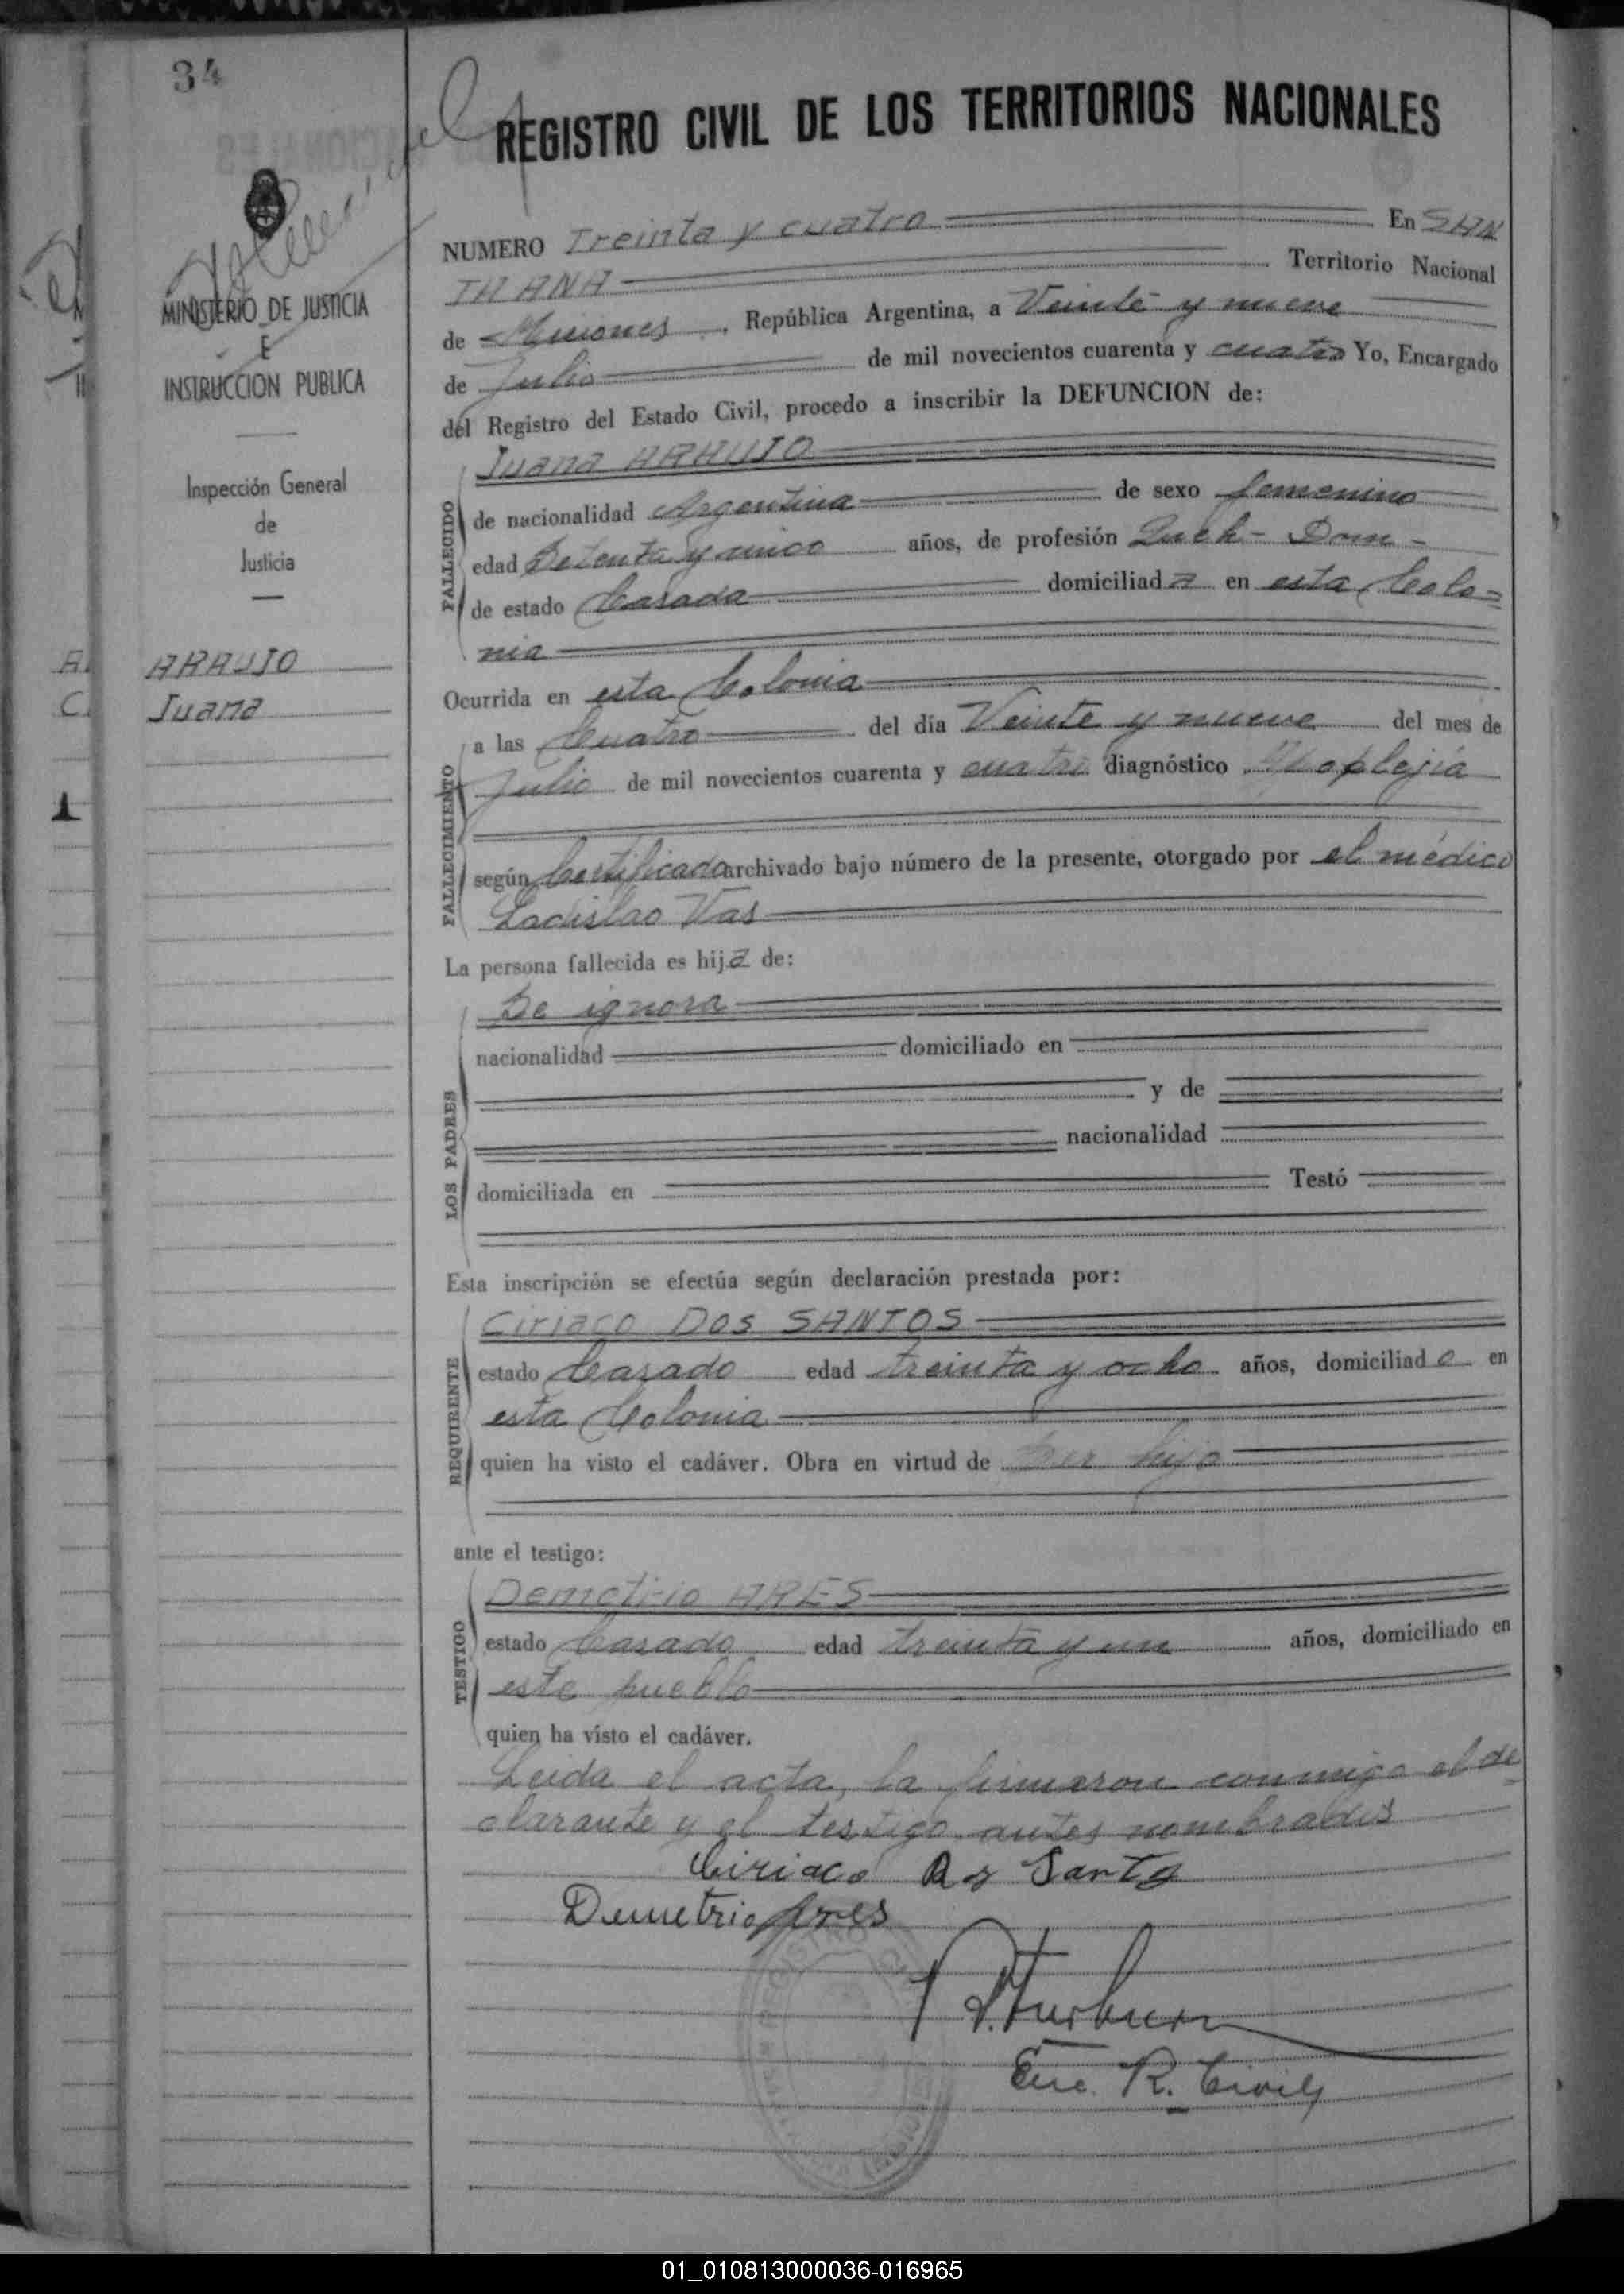 34
REGISTRO CIVIL DE LOS TERRITORIOS NACIONALES
MINISTERIO DE JUSTICIA
E
INSTRUCCION PUBLICA
Inspección General
de
Justicia
A. ARAUJO
C. Juana
NUMERO Treinta y cuatro En SAN
TA ANA Territorio Nacional
de Misiones, República Argentina, a Veinte y nueve
de Julio de mil novecientos cuarenta y cuatro Yo, Encargado
del Registro del Estado Civil, procedo a inscribir la DEFUNCION de:
FALLECIDO
Juana ARAUJO
de nacionalidad Argentina de sexo femenino
edad Setenta y cinco años, de profesión Queh - Dom -
de estado Casada domiciliada en esta Colo=
nia
Ocurrida en esta Colonia
FALLECIMIENTO
a las Cuatro del día Veinte y nueve del mes de
Julio de mil novecientos cuarenta y cuatro diagnóstico Apoplejía
según Certificado archivado bajo número de la presente, otorgado por el médico
Ladislao Vas
La persona fallecida es hija de:
LOS PADRES
Se ignora
nacionalidad domiciliado en
y de
nacionalidad
domiciliada en Testó
Esta inscripción se efectúa según declaración prestada por:
REQUIRENTE
Ciriaco DOS SANTOS
estado Casado edad treinta y ocho años, domiciliado en
esta Colonia
quien ha visto el cadáver. Obra en virtud de ser hijo
ante el testigo:
TESTIGO
Demetrio ARES
estado Casado edad treinta y un años, domiciliado en
este pueblo
quien ha visto el cadáver.
Leida el acta, la firmaron conmigo el de
clarante y el testigo antes nombrados
Ciriaco Dos Santos
Demetrio Ares
Enc. R. Civil
01_010813000036-016965